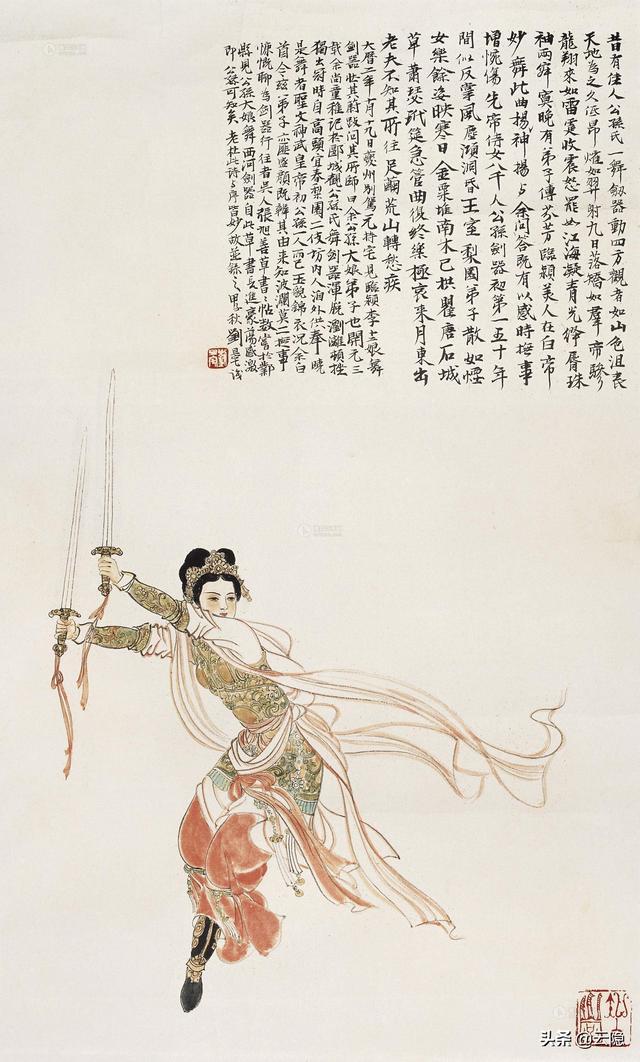 昔有佳人公孫氏一舞劍器動四方觀者如山色沮喪
天地為之久低昂㸌如羿射九日落矯如羣帝驂
龍翔來如雷霆收震怒罷如江海凝青光絳唇珠
袖兩寂寞晚有弟子傳芬芳臨潁美人在白帝
妙舞此曲揚神揚与余問答既有以感時撫事
增惋傷先帝侍女八千人公孫劍器初第一五十年
間似反掌風塵澒洞昏王室梨園弟子散如煙
女樂餘姿映寒日金粟堆南木已拱瞿唐石城
草蕭瑟玳筵急管曲復終樂極哀來月東出
老夫不知其所往足繭荒山轉愁疾
大曆二年十月十九日夔州別駕元持宅見臨潁李十二娘舞
劍器壯其蔚跂問其所師曰余公孫大娘弟子也開元三
載余尚童稚記於郾城觀公孫氏舞劍器渾脫瀏灕頓挫
獨出冠時自高頭宜春梨園二伎坊內人洎外供奉曉
是舞者聖文神武皇帝初公孫一人而已玉貌錦衣況余白
首今茲弟子亦匪盛顏既辨其由來知波瀾莫二撫事
慷慨聊為劍器行往者吳人張旭善草書書帖數嘗於鄴
縣見公孫大娘舞西河劍器自此草書長進豪蕩感激
即公孫可知矣 老杜此詩与序皆妙故並錄之 甲秋 劉旦宅識
头条 @云隐